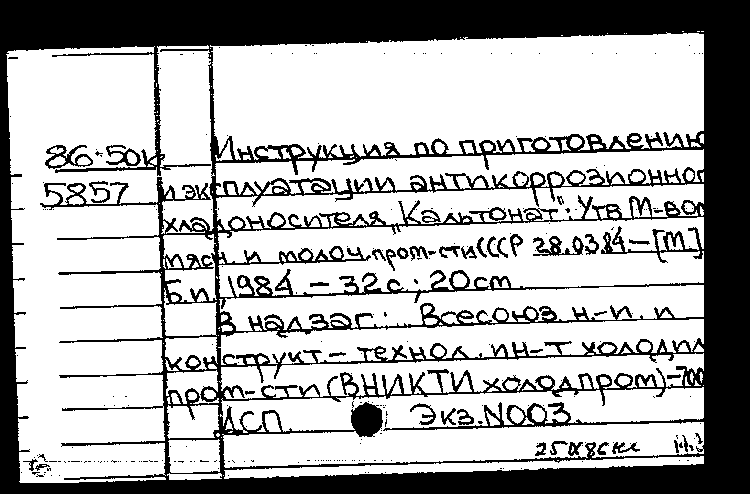 86-50к Инструкция по приготовлению
5857 и эксплуатации антикоррозионног
хладоносителя „Кальтонат": Утв М-вом
мясн. и молоч.пром-сти СССР 28.03.84.-[М.]
Б.и., 1984. - 32с.; 20cm.
В надзаг.: Всесоюз. н.-и. и
конструкт.- технол. ин-т холодил
пром-сти (ВНИКТИ холодпром).-700
ДСП. Экз.N003.
25 IX 86